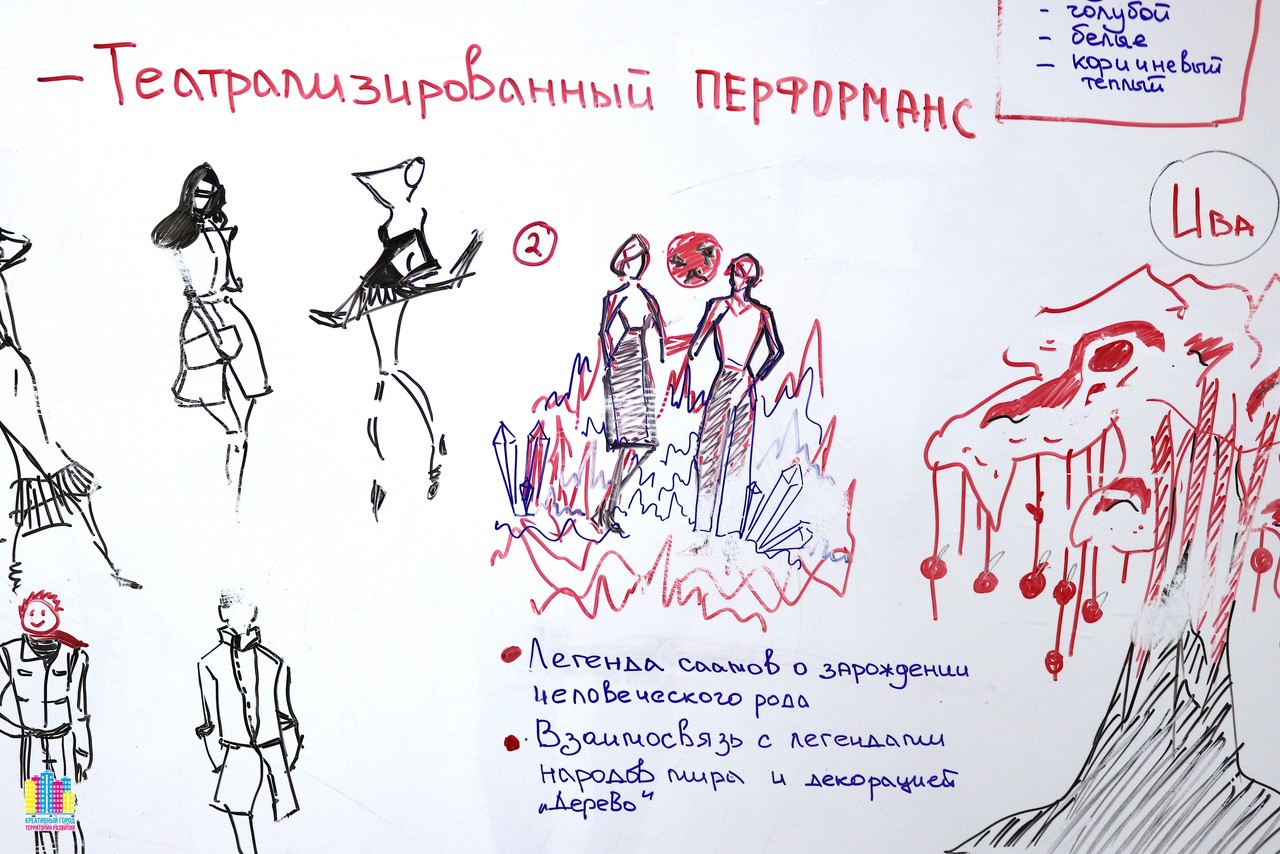 – Театрализированный ПЕРФОРМАНС
- голубой
- белые
- коричневый
теплый
Ива
2
• Легенда саамов о зарождении
человеческого рода
• Взаимосвязь с легендами
народов мира и декорацией
„Дерево“
КРЕАТИВНЫЙ ГОРОД
ТЕРРИТОРИЯ РАЗВИТИЯ